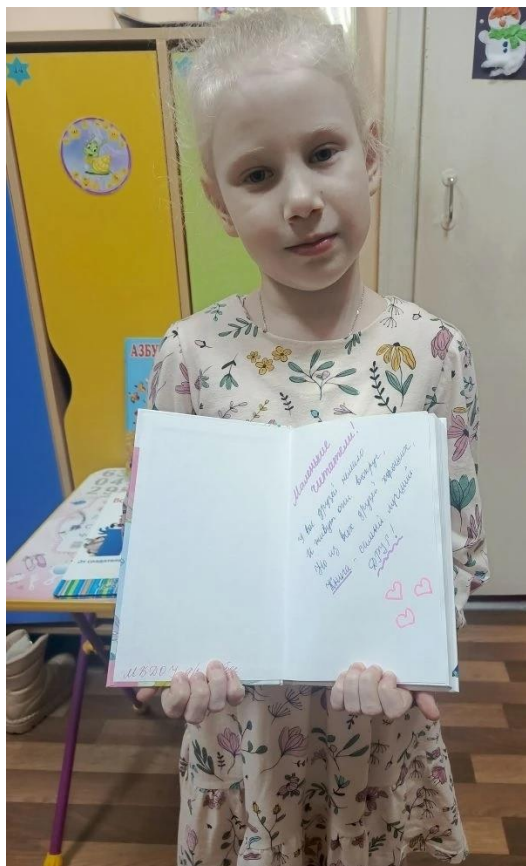 АЗБУ
Маленькие
читатели!
У вас друзей немало
И живут они вокруг,
Но из всех друзей хороших,
Книга - самый лучший
ДРУГ!
МБДОУ